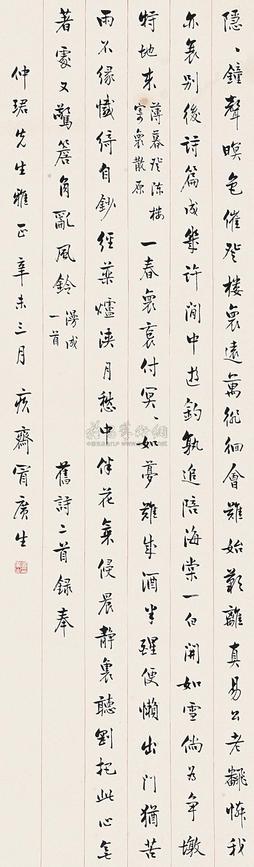 隱、鐘聲暝色催登樓褱遠徘徊會難始歎離真易公老翻憐我
亦衰別後詩篇成幾許閒中游釣孰追陪海棠一白開如雪倘爲爭墩
特地來
薄暮登陳樓
寄褱散原
一春褱裹付冥、如夢難成酒半醒便懶出門猶苦
雨不緣懺綺自鈔經藥爐淡月愁中伴花氣侵晨靜裏聽剗把此心無
著處又驚簷角亂風鈴
漫成
一首
舊詩二首錄奉
仲珺先生雅正辛未三月疚齋冒廣生